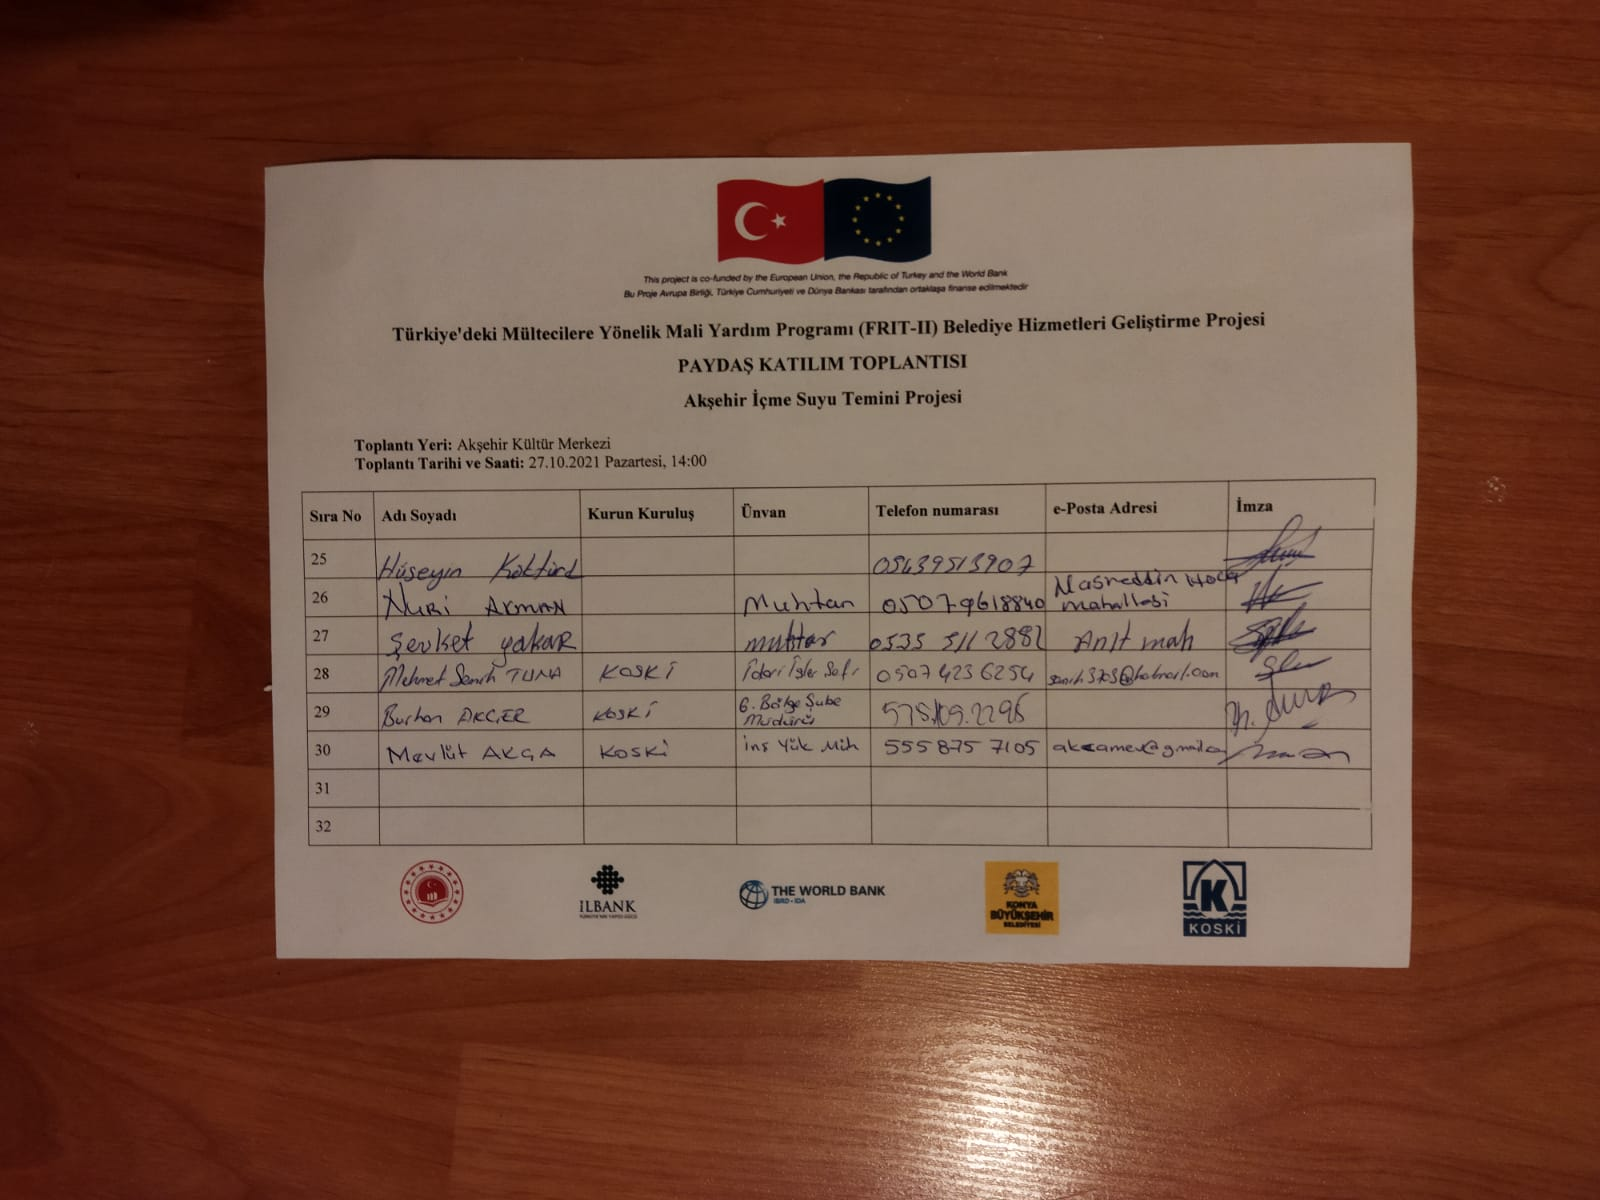 This project is co-funded by the European Union, the Republic of Turkey and the World Bank
Bu Proje Avrupa Birliği, Türkiye Cumhuriyeti ve Dünya Bankası tarafından ortaklaşa finanse edilmektedir
Türkiye'deki Mültecilere Yönelik Mali Yardım Programı (FRIT-II) Belediye Hizmetleri Geliştirme Projesi
PAYDAŞ KATILIM TOPLANTISI
Akşehir İçme Suyu Temini Projesi
Toplantı Yeri: Akşehir Kültür Merkezi
Toplantı Tarihi ve Saati: 27.10.2021 Pazartesi, 14:00
Sıra No Adı Soyadı Kurun Kuruluş Ünvan Telefon numarası e-Posta Adresi İmza
25 Hüseyin 05439513907
26 Nuri AKMAN Muhtar 05079618840 Nasreddin Hoca mahallesi
27 Şevket yakar muhtar 0535 511 2882 Anıt mah
28 Mehmet Semih TUNA KOSKİ İdari İşler Şefi 0507 423 6254
29 Burhan AKCER KOSKİ 6. Bölge Şube Müdürü
30 Mevlüt AKÇA KOSKİ İnş Yük Müh 555 875 7105
31
32
ILBANK
THE WORLD BANK
IBRD • IDA
KONYA
BÜYÜKŞEHİR
BELEDİYESİ
K
KOSKİ